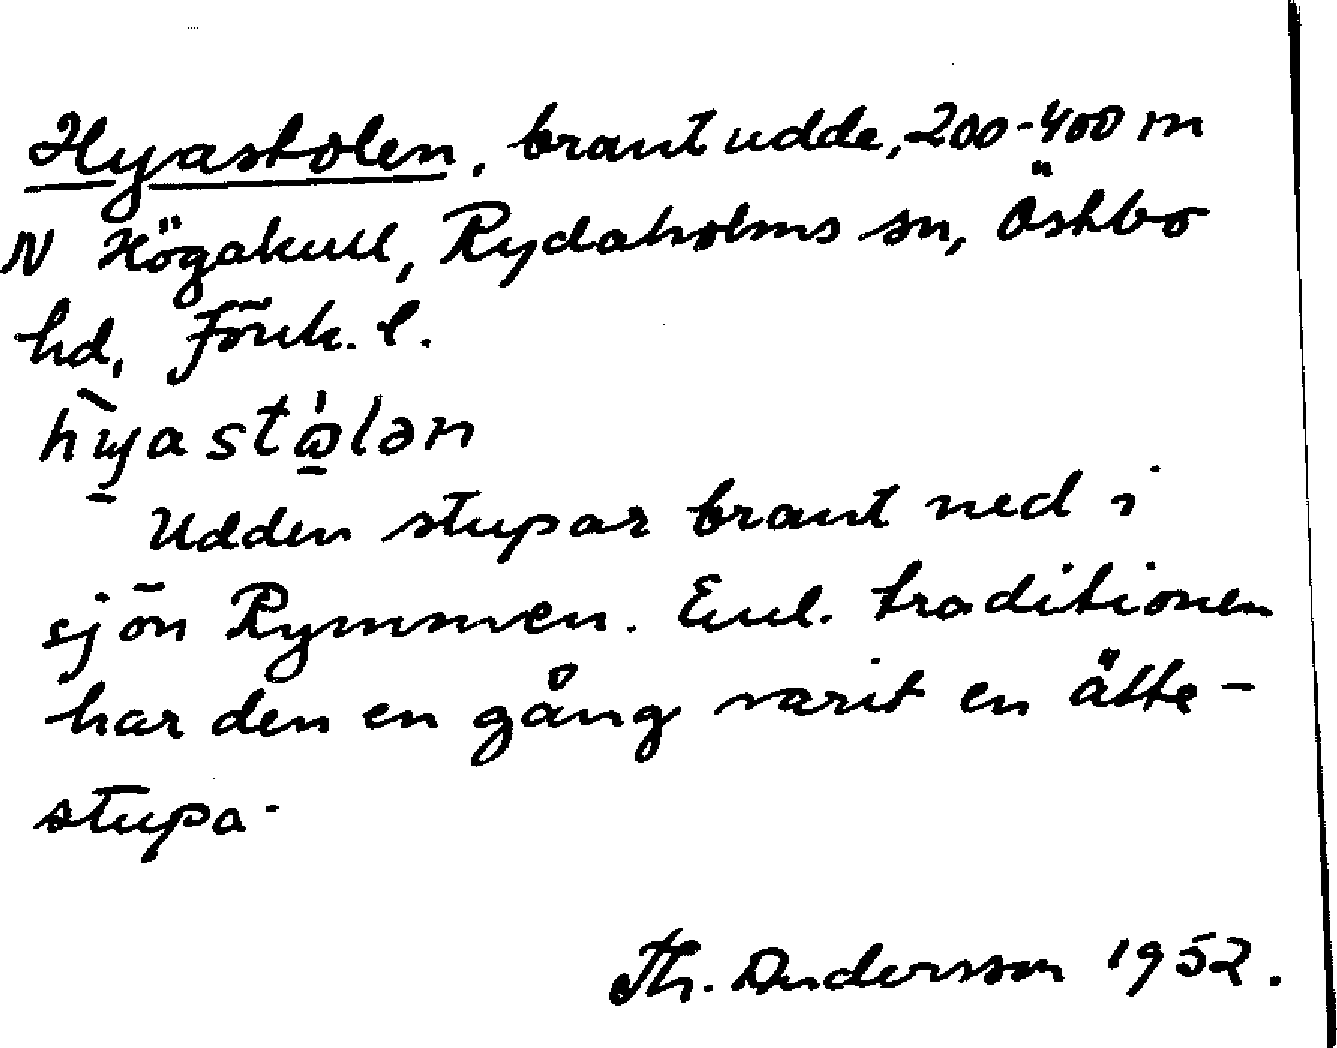 Hyastolen, brant udde, 200-400 m
N Högakull, Rydaholms sn, Östbo
hd, Jönk. l.
Udden stupar brant ned i
sjön Rymmen. Enl. traditionen
har den en gång varit en ätte-
stupa.
Th. Andersson 1952.